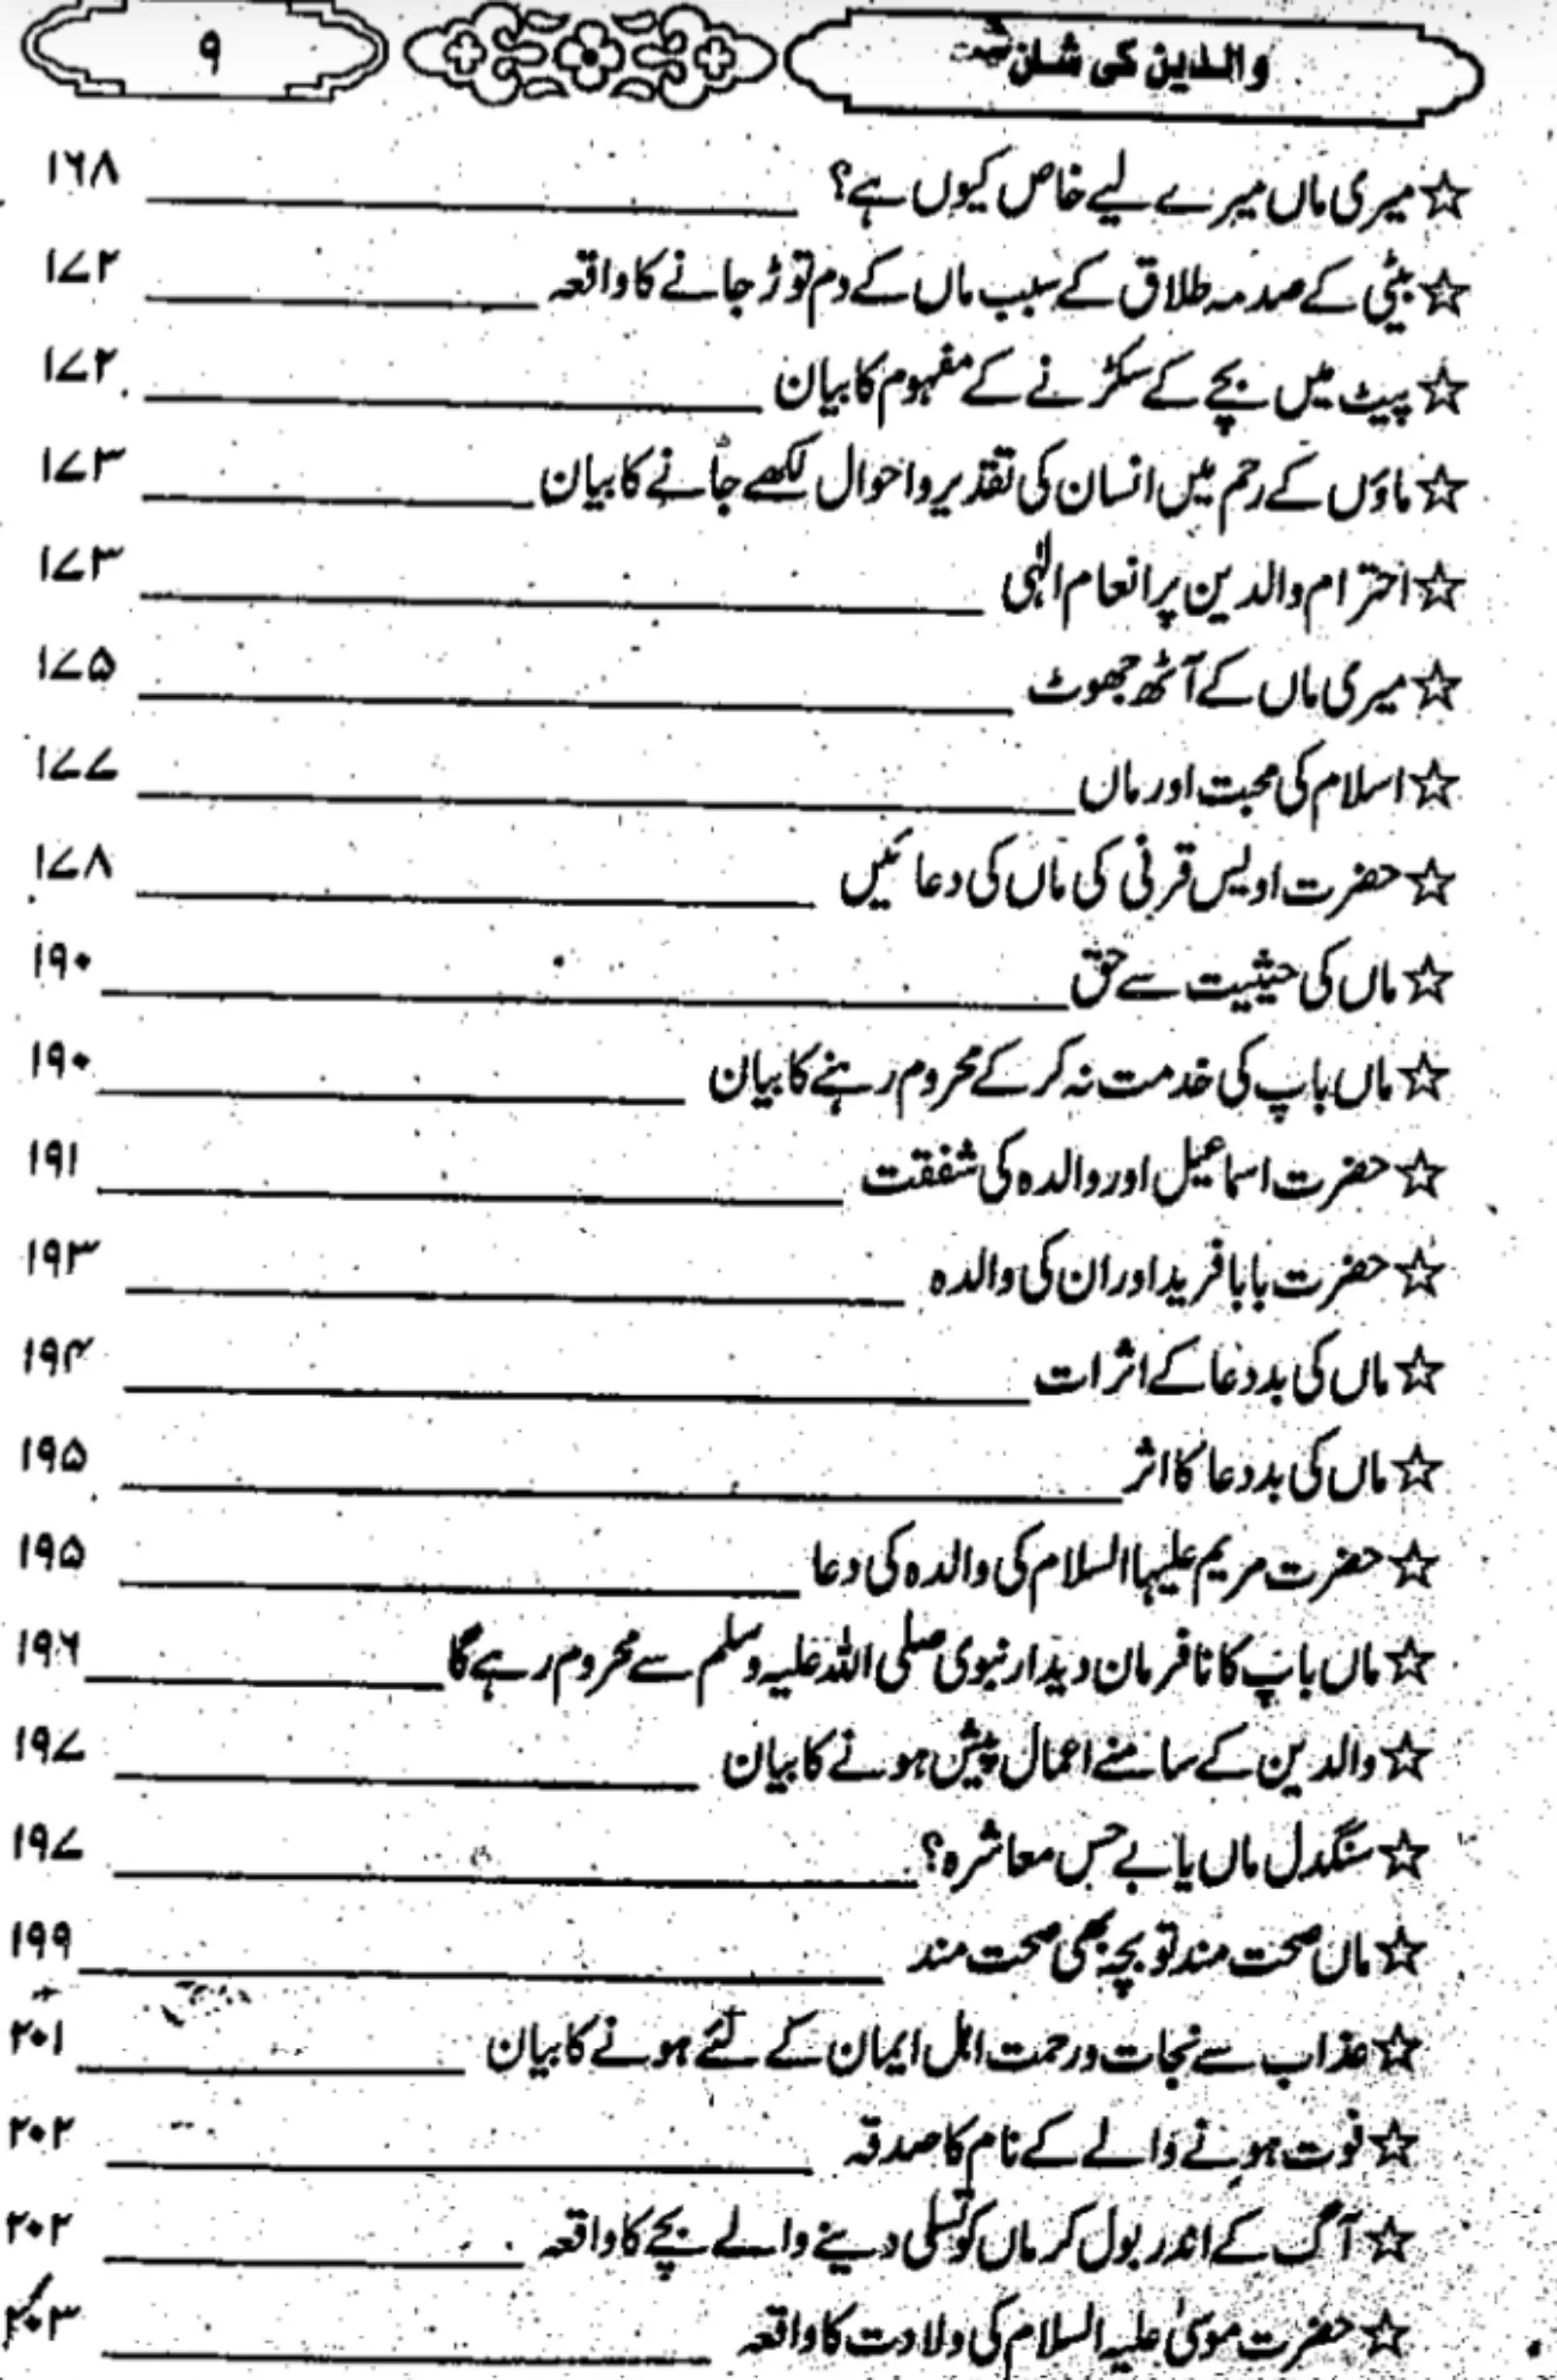 والدین کی شان
۹
☆ میری ماں میرے لیے خاص کیوں ہے؟ ۱۶۸
☆ بیٹی کے صدمہ طلاق کے سبب ماں کے دم توڑ جانے کا واقعہ ۱۷۲
☆ پیٹ میں بچے کے سکڑنے کے مفہوم کا بیان ۱۷۲
☆ ماؤں کے رحم میں انسان کی تقدیر و احوال لکھے جانے کا بیان ۱۷۳
☆ احترام والدین پر انعام الٰہی ۱۷۳
☆ میری ماں کے آٹھ جھوٹ ۱۷۵
☆ اسلام کی محبت اور ماں ۱۷۷
☆ حضرت اویس قرنی کی ماں کی دعائیں ۱۷۸
☆ ماں کی حیثیت سے حق ۱۹۰
☆ ماں باپ کی خدمت نہ کر کے محروم رہنے کا بیان ۱۹۰
☆ حضرت اسماعیل اور والدہ کی شفقت ۱۹۱
☆ حضرت بابا فرید اور ان کی والدہ ۱۹۳
☆ ماں کی بددعا کے اثرات ۱۹۴
☆ ماں کی بددعا کا اثر ۱۹۵
☆ حضرت مریم علیہا السلام کی والدہ کی دعا ۱۹۵
☆ ماں باپ کا نافرمان دیدار نبوی صلی اللہ علیہ وسلم سے محروم رہے گا ۱۹۶
☆ والدین کے سامنے اعمال پیش ہونے کا بیان ۱۹۷
☆ سنگدل ماں یا بے حس معاشرہ؟ ۱۹۷
☆ ماں صحت مند تو بچہ بھی صحت مند ۱۹۹
☆ عذاب سے نجات و رحمت اہل ایمان کے لئے ہونے کا بیان ۲۰۱
☆ فوت ہونے والے کے نام کا صدقہ ۲۰۲
☆ آگ کے اندر بول کر ماں کو تسلی دینے والے بچے کا واقعہ ۲۰۲
☆ حضرت موسیٰ علیہ السلام کی ولادت کا واقعہ ۲۰۳